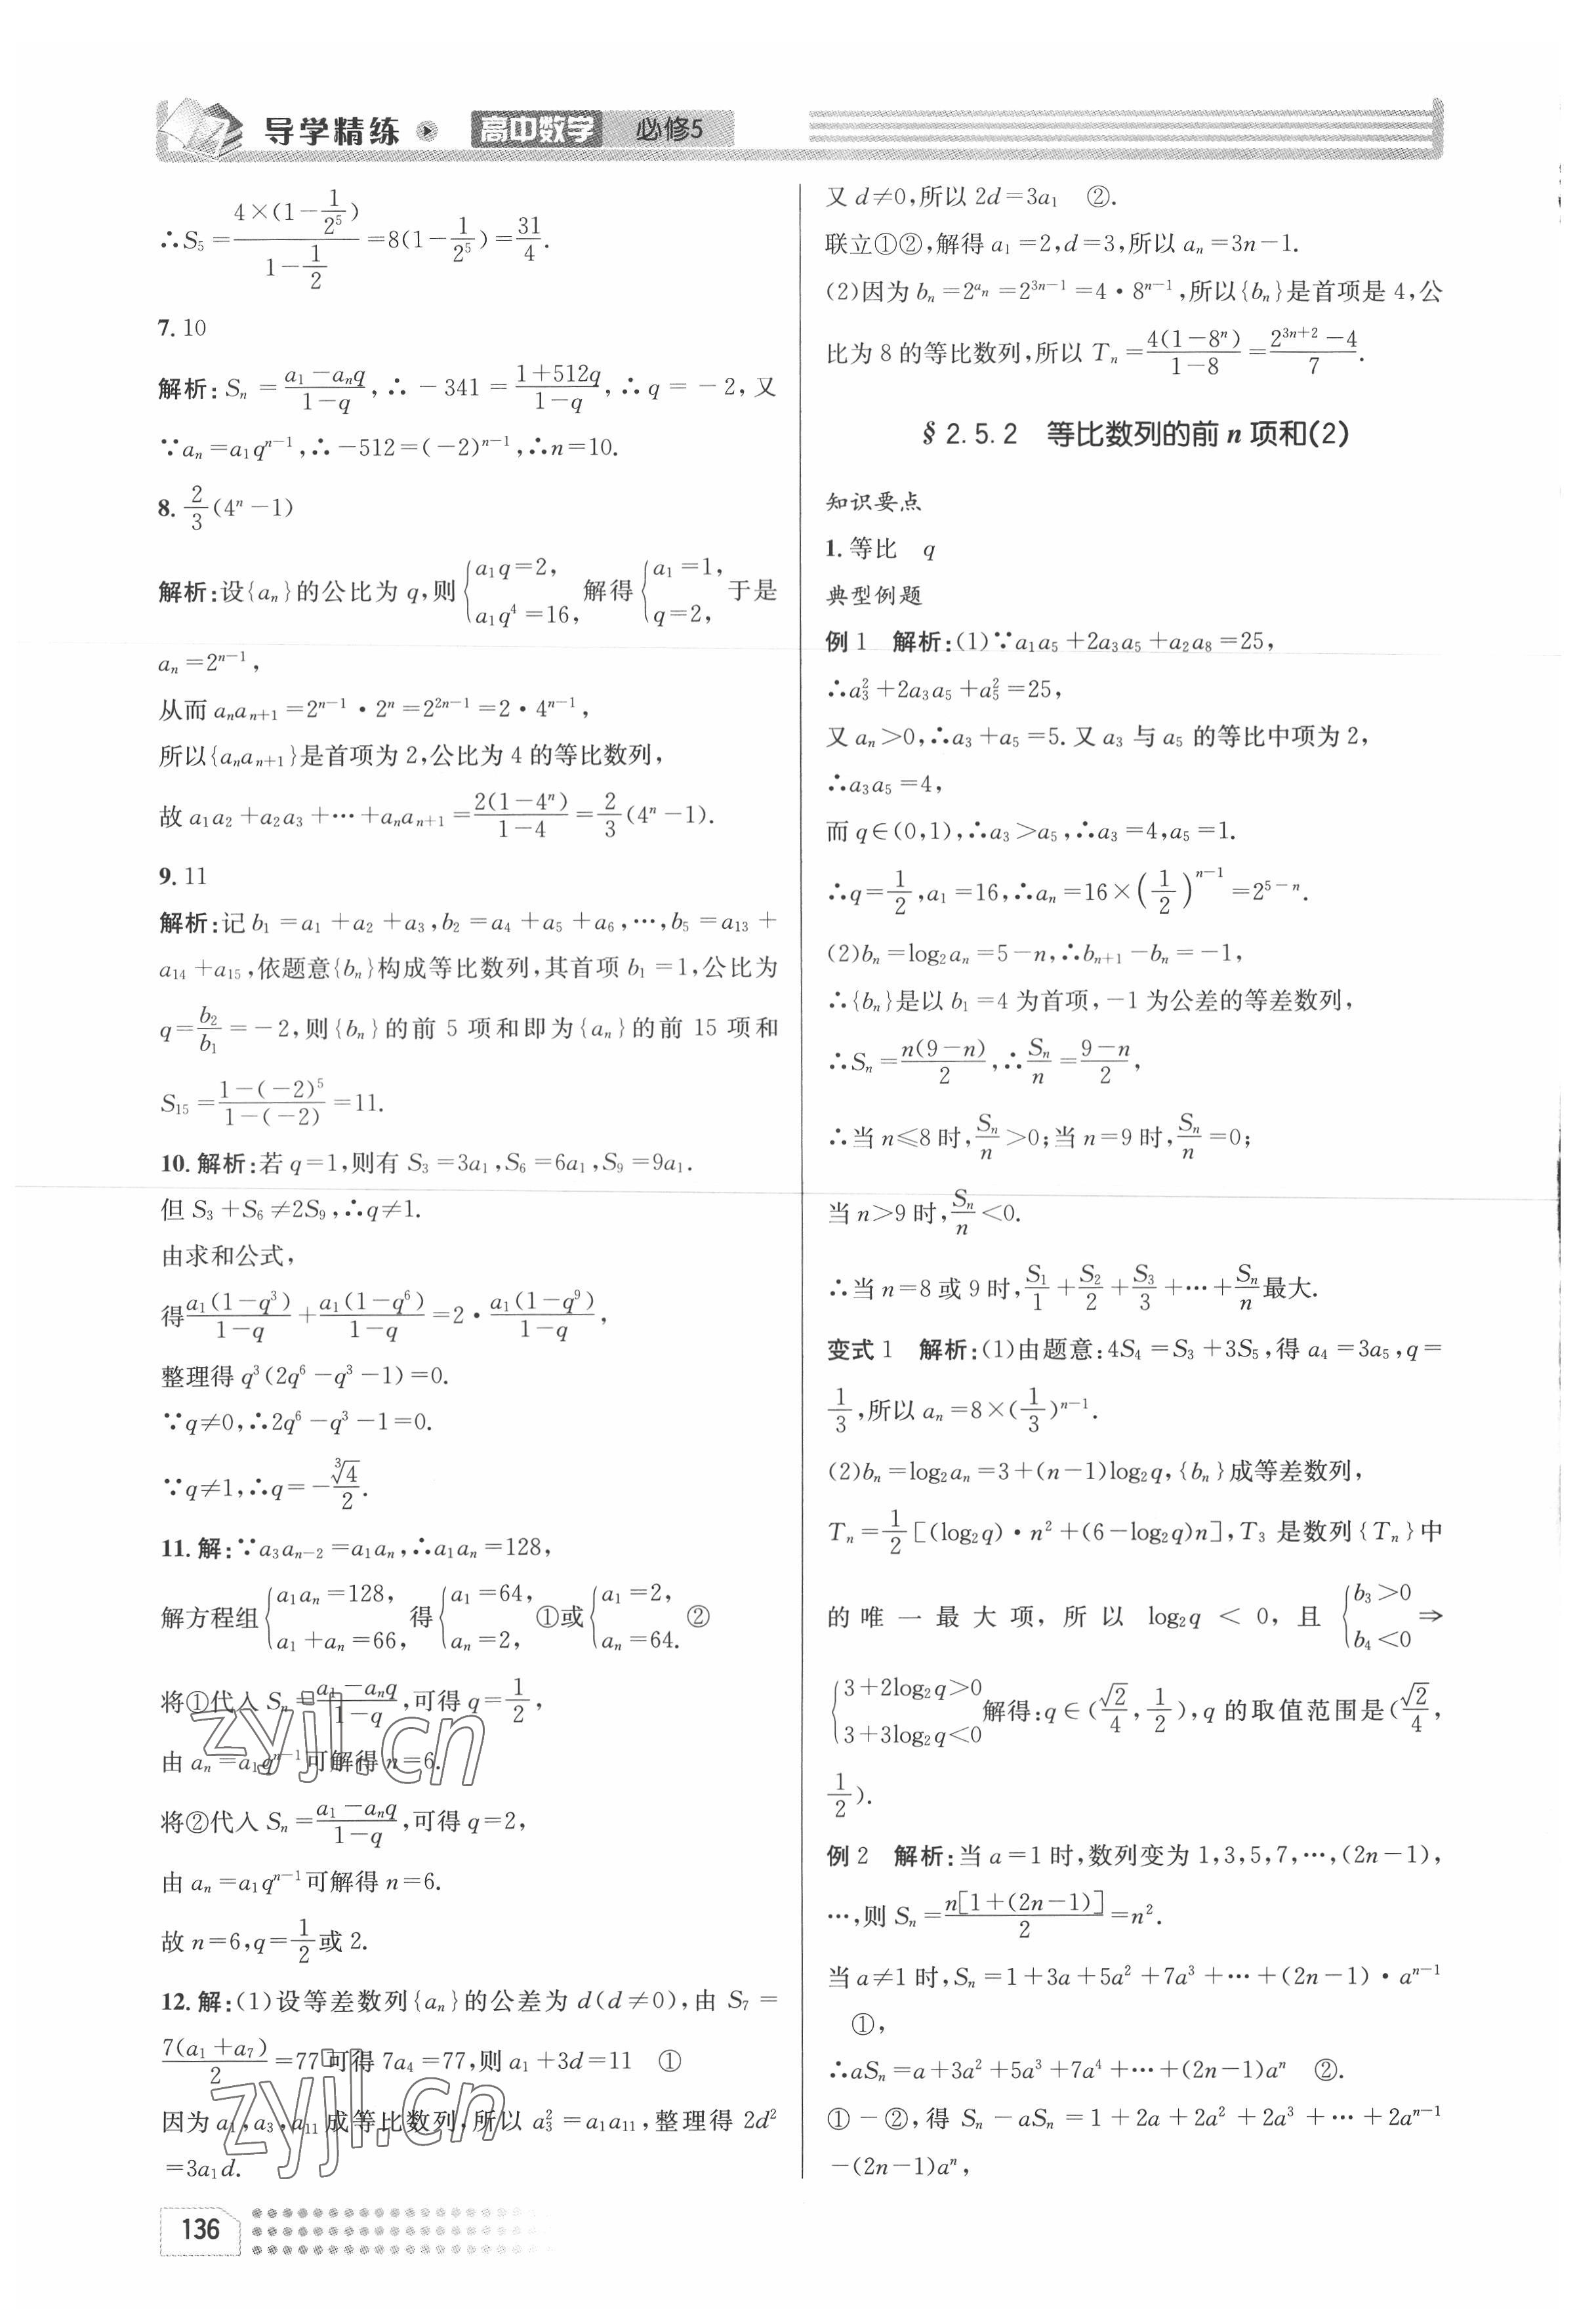 导学精练 高中数学 必修5
∴S₅=\frac{4×(1-\frac{1}{2^5})}{1-\frac{1}{2}}=8(1-\frac{1}{2^5})=\frac{31}{4}.
7. 10
解析:Sₙ=\frac{a₁-aₙq}{1-q},∴-341=\frac{1+512q}{1-q},∴q=-2,又
∵aₙ=a₁q^{n-1},∴-512=(-2)^{n-1},∴n=10.
8. \frac{2}{3}(4^n-1)
解析:设{aₙ}的公比为q,则{a₁q=2, a₁q⁴=16, 解得{a₁=1, q=2, 于是
aₙ=2^{n-1},
从而aₙa_{n+1}=2^{n-1}·2^n=2^{2n-1}=2·4^{n-1},
所以{aₙa_{n+1}}是首项为2,公比为4的等比数列,
故a₁a₂+a₂a₃+…+aₙa_{n+1}=\frac{2(1-4^n)}{1-4}=\frac{2}{3}(4^n-1).
9. 11
解析:记b₁=a₁+a₂+a₃,b₂=a₄+a₅+a₆,…,b₅=a₁₃+
a₁₄+a₁₅,依题意{bₙ}构成等比数列,其首项b₁=1,公比为
q=\frac{b₂}{b₁}=-2,则{bₙ}的前5项和即为{aₙ}的前15项和
S₁₅=\frac{1-(-2)^5}{1-(-2)}=11.
10. 解析:若q=1,则有S₃=3a₁,S₆=6a₁,S₉=9a₁.
但S₃+S₆≠2S₉,∴q≠1.
由求和公式,
得\frac{a₁(1-q³)}{1-q}+\frac{a₁(1-q⁶)}{1-q}=2·\frac{a₁(1-q⁹)}{1-q},
整理得q³(2q⁶-q³-1)=0.
∵q≠0,∴2q⁶-q³-1=0.
∵q≠1,∴q=-\frac{\sqrt[3]{4}}{2}.
11. 解:∵a₃a_{n-2}=a₁aₙ,∴a₁aₙ=128,
解方程组{a₁aₙ=128, a₁+aₙ=66, 得{a₁=64, aₙ=2, ①或{a₁=2, aₙ=64. ②
将①代入Sₙ=\frac{a₁-aₙq}{1-q},可得q=\frac{1}{2},
由aₙ=a₁q^{n-1}可解得n=6.
将②代入Sₙ=\frac{a₁-aₙq}{1-q},可得q=2,
由aₙ=a₁q^{n-1}可解得n=6.
故n=6,q=\frac{1}{2}或2.
12. 解:(1)设等差数列{aₙ}的公差为d(d≠0),由S₇=
\frac{7(a₁+a₇)}{2}=77可得7a₄=77,则a₁+3d=11 ①
因为a₁,a₃,a₁₁成等比数列,所以a₃²=a₁a₁₁,整理得2d²
=3a₁d.
zyjl.cn
zyjl.cn
136
又d≠0,所以2d=3a₁ ②.
联立①②,解得a₁=2,d=3,所以aₙ=3n-1.
(2)因为bₙ=2^{aₙ}=2^{3n-1}=4·8^{n-1},所以{bₙ}是首项是4,公
比为8的等比数列,所以Tₙ=\frac{4(1-8^n)}{1-8}=\frac{2^{3n+2}-4}{7}.
§2.5.2 等比数列的前n项和(2)
知识要点
1. 等比 q
典型例题
例1 解析:(1)∵a₁a₅+2a₃a₅+a₂a₈=25,
∴a₃²+2a₃a₅+a₅²=25,
又aₙ>0,∴a₃+a₅=5.又a₃与a₅的等比中项为2,
∴a₃a₅=4,
而q∈(0,1),∴a₃>a₅,∴a₃=4,a₅=1.
∴q=\frac{1}{2},a₁=16,∴aₙ=16×(\frac{1}{2})^{n-1}=2^{5-n}.
(2)bₙ=log₂aₙ=5-n,∴b_{n+1}-bₙ=-1,
∴{bₙ}是以b₁=4为首项,-1为公差的等差数列,
∴Sₙ=\frac{n(9-n)}{2},∴\frac{Sₙ}{n}=\frac{9-n}{2},
∴当n≤8时,\frac{Sₙ}{n}>0;当n=9时,\frac{Sₙ}{n}=0;
当n>9时,\frac{Sₙ}{n}<0.
∴当n=8或9时,\frac{S₁}{1}+\frac{S₂}{2}+\frac{S₃}{3}+…+\frac{Sₙ}{n}最大.
变式1 解析:(1)由题意:4S₄=S₃+3S₅,得a₄=3a₅,q=
\frac{1}{3},所以aₙ=8×(\frac{1}{3})^{n-1}.
(2)bₙ=log₂aₙ=3+(n-1)log₂q,{bₙ}成等差数列,
Tₙ=\frac{1}{2}[(log₂q)·n²+(6-log₂q)n],T₃是数列{Tₙ}中
的唯一最大项,所以log₂q<0,且{b₃>0 b₄<0⇒
{3+2log₂q>0 3+3log₂q<0解得:q∈(\frac{\sqrt{2}}{4},\frac{1}{2}),q的取值范围是(\frac{\sqrt{2}}{4},
\frac{1}{2}).
例2 解析:当a=1时,数列变为1,3,5,7,…,(2n-1),
…,则Sₙ=\frac{n[1+(2n-1)]}{2}=n².
当a≠1时,Sₙ=1+3a+5a²+7a³+…+(2n-1)·a^{n-1}
①,
∴aSₙ=a+3a²+5a³+7a⁴+…+(2n-1)aⁿ ②.
①-②,得Sₙ-aSₙ=1+2a+2a²+2a³+…+2a^{n-1}
-(2n-1)aⁿ,